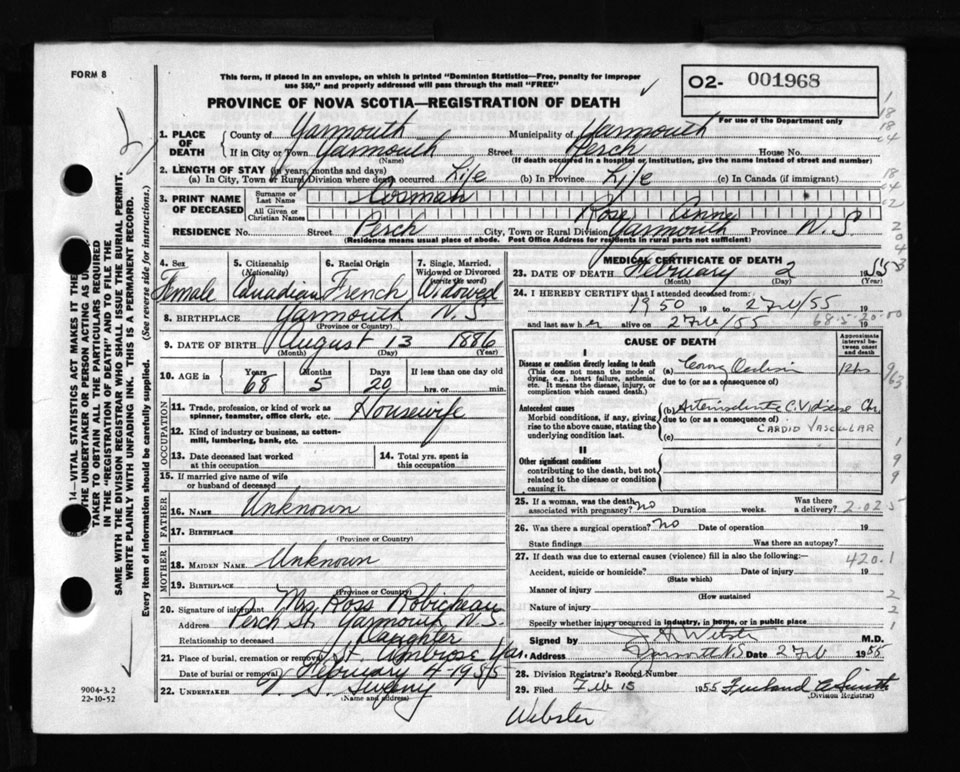 FORM 8
This form, if placed in an envelope, on which is printed "Dominion Statistics—Free, penalty for improper
use $50," and properly addressed will pass through the mail "FREE"
PROVINCE OF NOVA SCOTIA—REGISTRATION OF DEATH
O2- 001968
For use of the Department only
1. PLACE OF DEATH
County of Yarmouth Municipality of Yarmouth
If in City or Town Yarmouth Street Perch House No.
(Name) (If death occurred in a hospital or institution, give the name instead of street and number)
2. LENGTH OF STAY (in years, months and days)
(a) In City, Town or Rural Division where death occurred Life (b) In Province Life (c) In Canada (if immigrant)
3. PRINT NAME OF DECEASED
Surname or Last Name Cosman
All Given or Christian Names Rose Anne
RESIDENCE No. Street Perch City, Town or Rural Division Yarmouth Province N.S.
(Residence means usual place of abode. Post Office Address for residents in rural parts not sufficient)
4. Sex Female
5. Citizenship (Nationality) Canadian
6. Racial Origin French
7. Single, Married, Widowed or Divorced (write the word) Widowed
8. BIRTHPLACE Yarmouth N.S.
(Province or Country)
9. DATE OF BIRTH August 13 1886
(Month) (Day) (Year)
10. AGE in Years 68 Months 5 Days 20 If less than one day
hrs. or min.
OCCUPATION
11. Trade, profession, or kind of work as spinner, teamster, office clerk, etc. Housewife
12. Kind of industry or business, as cotton-mill, lumbering, bank, etc.
13. Date deceased last worked at this occupation
14. Total yrs. spent in this occupation
15. If married give name of wife or husband of deceased
FATHER
16. NAME Unknown
17. BIRTHPLACE
(Province or Country)
MOTHER
18. MAIDEN NAME Unknown
19. BIRTHPLACE
(Province or Country)
20. Signature of informant Mrs Ross Robicheau
Address Perch St. Yarmouth N.S.
Relationship to deceased Daughter
21. Place of burial, cremation or removal St. Ambrose Yar.
Date of burial or removal February 4 1955
22. UNDERTAKER Sweeny
(Name and address)
MEDICAL CERTIFICATE OF DEATH
23. DATE OF DEATH February 2 1955
(Month) (Day) (Year)
24. I HEREBY CERTIFY that I attended deceased from:
1950 19 to 2 Feb/55 19
and last saw her alive on 2 Feb/55 19
68-5-20-00
CAUSE OF DEATH
Approximate interval between onset and death
I
Disease or condition directly leading to death
(This does not mean the mode of dying, e.g., heart failure, asthenia, etc. It means the disease, injury, or complication which caused death.)
(a)
due to (or as a consequence of)
Antecedent causes
Morbid conditions, if any, giving rise to the above cause, stating the underlying condition last.
(b)
due to (or as a consequence of)
CARDIO VASCULAR
(c)
II
Other significant conditions
contributing to the death, but not related to the disease or condition causing it.
25. If a woman, was the death associated with pregnancy? no Duration weeks. Was there a delivery?
26. Was there a surgical operation? no Date of operation 19
State findings Was there an autopsy?
27. If death was due to external causes (violence) fill in also the following:—
420.1
Accident, suicide or homicide? Date of injury 19
(State which)
Manner of injury
(How sustained
Nature of injury
Specify whether injury occurred in industry, in home, or in public place
Signed by Webster M.D.
Address Yarmouth NS Date 2 Feb 1955
28. Division Registrar's Record Number
29. Filed Feb 15 1955
(Division Registrar)
Webster
9004-3.2
22-10-52
14—VITAL STATISTICS ACT MAKES IT THE
THE UNDERTAKER OR PERSON ACTING AS UNDER
TAKER TO OBTAIN ALL THE PARTICULARS REQUIRED
IN THE "REGISTRATION OF DEATH" AND TO FILE THE
SAME WITH THE DIVISION REGISTRAR WHO SHALL ISSUE THE BURIAL PERMIT.
WRITE PLAINLY WITH UNFADING INK. THIS IS A PERMANENT RECORD.
Every item of information should be carefully supplied. (See reverse side for instructions.)